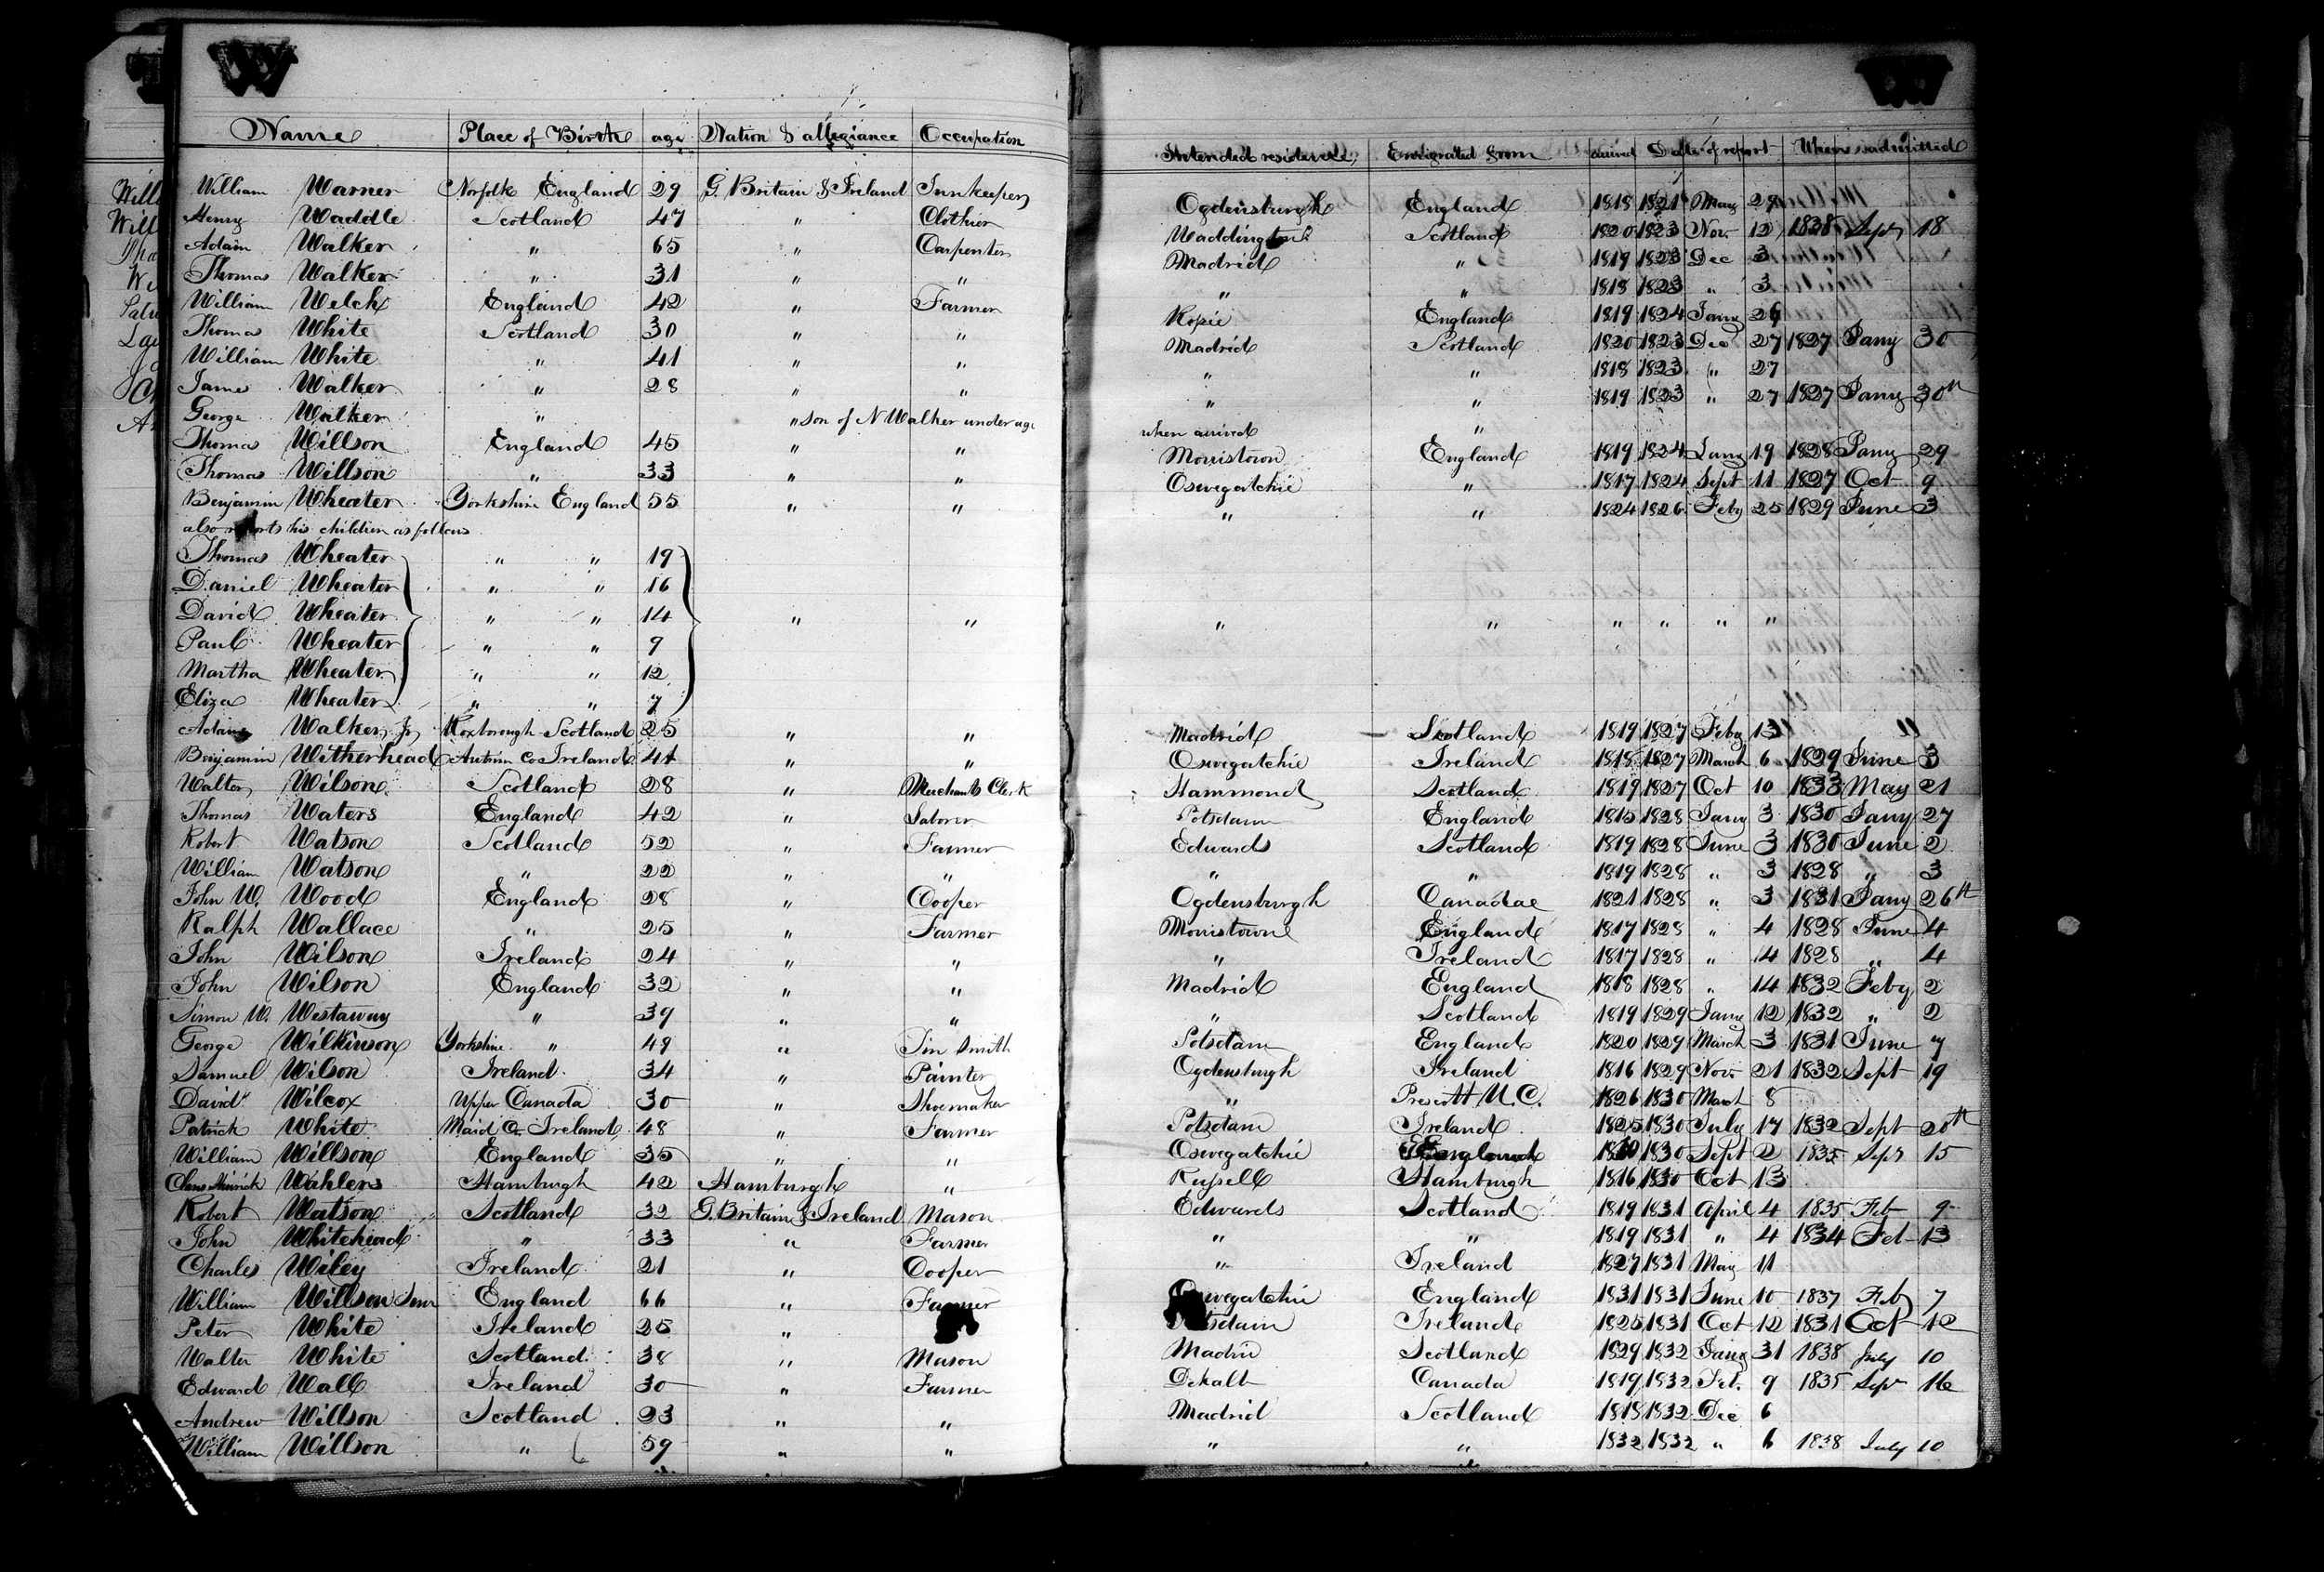 W W
Name Place of Birth age Nation & allegiance Occupation Intended residence Emigrated from arrived Date of report When admitted
William Warner Norfolk England 29 G. Britain & Ireland Innkeeper Ogdensburgh England 1818 1821 May 29
Henry Waddle Scotland 47 " Clothier Waddington Scotland 1820 1823 Nov. 12 1838 Sept 18
Adam Walker " 65 " Carpenter Madrid " 1819 1823 Dec 3
Thomas Walker " 31 " " " " 1818 1823 " 3
William Welch England 42 " Farmer Rossie England 1819 1824 Jany 26
Thomas White Scotland 30 " " Madrid Scotland 1820 1823 Dec 27 1827 Jany 30
William White " 41 " " " " 1818 1823 " 27
James Walker " 28 " " " " 1819 1823 " 27 1827 Jany 30th
George Walker " " son of N Walker under age when arrived "
Thomas Willson England 45 " " Morristown England 1819 1824 Jany 19 1828 Jany 29
Thomas Willson " 33 " " Oswegatchie " 1817 1824 Sept 11 1827 Oct 9
Benjamin Wheater Yorkshire England 55 " " " " 1824 1826 Feby 25 1829 June 3
also reports his children as follows
Thomas Wheater " " 19
Daniel Wheater " " 16
David Wheater " " 14 " " " " " " " "
Paul Wheater " " 9
Martha Wheater " " 12
Eliza Wheater " " 7
Adam Walker Jr Roxborough Scotland 25 " " Madrid Scotland 1819 1827 Feby 13
Benjamin Witherhead Antrim Co Ireland 41 " " Oswegatchie Ireland 1818 1827 March 6 1829 June 3
Walter Wilson Scotland 28 " Merchants Clerk Hammond Scotland 1819 1827 Oct 10 1833 May 21
Thomas Waters England 42 " Laborer Potsdam England 1815 1828 Jany 3 1830 Jany 27
Robert Watson Scotland 52 " Farmer Edwards Scotland 1819 1828 June 3 1830 June 2
William Watson " 22 " " " " 1819 1828 " 3 1828 " 3
John W. Wood England 28 " Cooper Ogdensburgh Canadae 1821 1828 " 3 1831 Jany 26th
Ralph Wallace " 25 " Farmer Morristown England 1817 1828 " 4 1828 June 4
John Wilson Ireland 24 " " " Ireland 1817 1828 " 14 1828 " 4
John Wilson England 32 " " Madrid England 1818 1828 " 14 1832 Feby 2
Simon W. Westaway " 39 " " " Scotland 1819 1829 Jany 12 1832 " 2
George Wilkinson Yorkshire " 49 " Tin Smith Potsdam England 1820 1829 March 3 1831 June 7
Samuel Wilson Ireland 34 " Painter Ogdensburgh Ireland 1816 1829 Nov. 21 1832 Sept 19
David Wilcox Upper Canada 30 " Shoemaker " Prescott U.C. 1826 1830 March 8
Patrick White Maid Co. Ireland 48 " Farmer Potsdam Ireland 1825 1830 July 17 1832 Sept 20th
William Willson England 35 " " Oswegatchie England 1830 Sept 2 1835 Sept 15
Hinrick Wahlers Hamburgh 42 Hamburgh " Russell Hamburgh 1816 1830 Oct 13
Robert Watson Scotland 32 G. Britain & Ireland Mason Edwards Scotland 1819 1831 April 4 1835 Feb 9
John Whitehead " 33 " Farmer " " 1819 1831 " 4 1834 Feb 13
Charles Wiley Ireland 21 " Cooper " Ireland 1827 1831 May 11
William Willson Senr England 66 " Farmer Oswegatchie England 1831 1831 June 10 1837 Feb 7
Peter White Ireland 25 " Potsdam Ireland 1825 1831 Oct 12 1831 Oct 12
Walter White Scotland 38 " Mason Madrid Scotland 1829 1832 Jany 31 1838 July 10
Edward Wall Ireland 30 " Farmer Dekalb Canada 1819 1832 Feb. 9 1835 Sept 16
Andrew Willson Scotland 23 " " Madrid Scotland 1818 1832 Dec 6
William Willson " 59 " " " " 1832 1832 " 6 1838 July 10